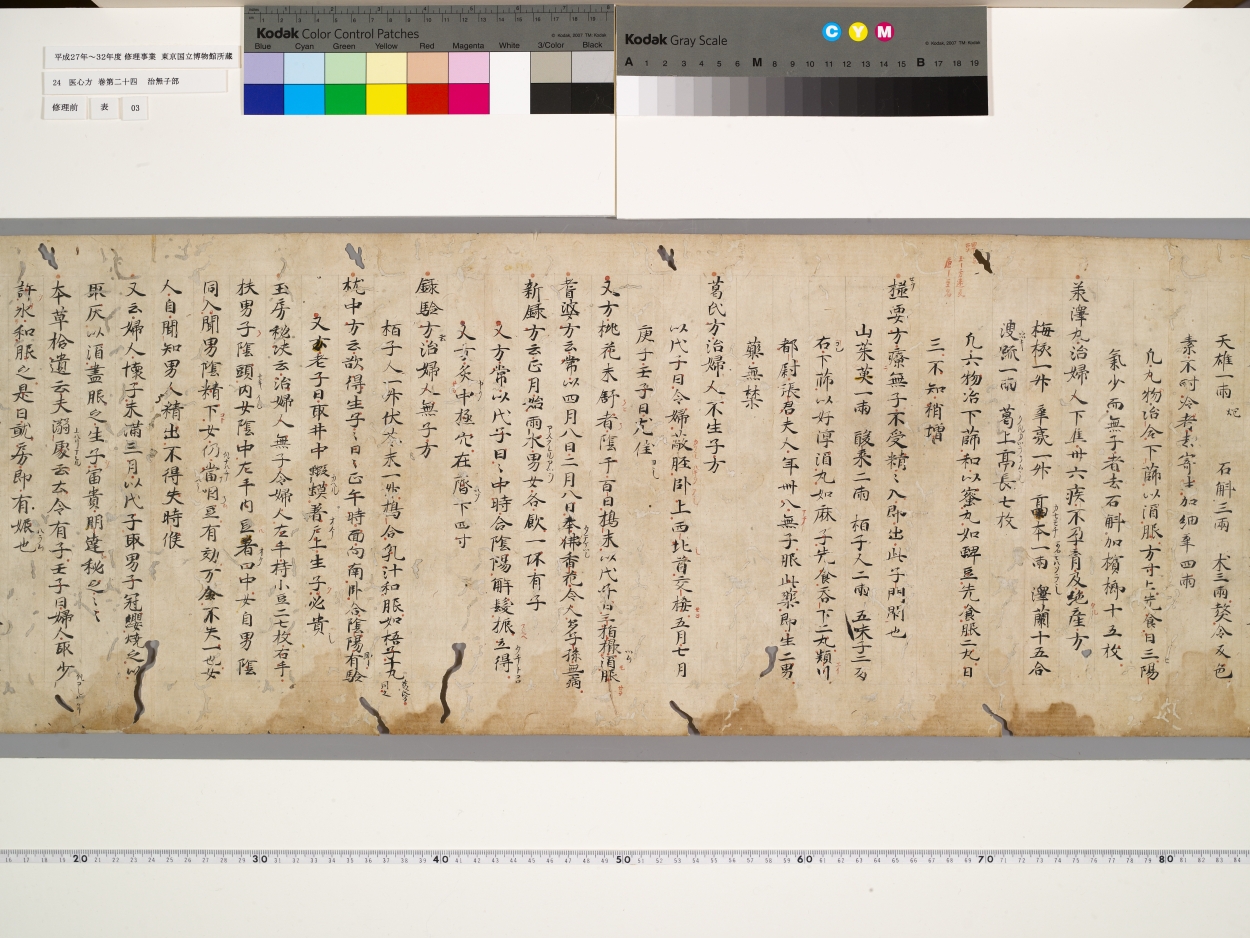 平成27年～32年度 修理事業 東京国立博物館所蔵
24 医心方 巻第二十四 治無子部
修理前 表 03
Kodak Color Control Patches
© Kodak, 2007 TM: Kodak
Blue Cyan Green Yellow Red Magenta White 3/Color Black
Kodak Gray Scale
C Y M
© Kodak, 2007 TM: Kodak
A 1 2 3 4 5 6 M 8 9 10 11 12 13 14 15 B 17 18 19
天雄一兩 石斛三兩 朮三兩熬令反色
凡九物冶合下篩以酒服方寸匕先食日三陽
氣少而無子者去石斛加檳榔十五枚
承澤丸治婦人下焦卅六疾不孕育及絶産方
梅核一升 辛夷一升 藁本一兩 澤蘭十五合
溲疏一兩 葛上亭長七枚
凡六物冶下篩和以蜜丸如豆先食服二丸日
三不知稍增
極要方療無子不受精精入即出此子門閉也
山茱萸一兩 酸棗二兩 栢子人二兩 五味子三兩
右下篩以好淳酒丸如麻子先食吞下二丸
都尉張君夫人年卌八無子服此藥即生二男
藥無禁
葛氏方治婦人不生子方
以戊子日令婦敝脛臥上西北首交接五月七月
庚子壬子日尤佳
又方桃花未舒者陰干百日搗末以戊子日三指撮酒服
耆婆方云常以四月八日二月八日奉佛香花令人多子孫無病
新録方云正月始雨水男女各飲一坏有子
又方常以戊子日日中時合陰陽解髮振立得
又方灸中極穴在臍下四寸
録驗方治婦人無子方
栢子人一升伏苓末一升搗合乳汁和服如梧子十丸
枕中方云欲得生子子日日正午時面向南臥合陰陽有驗
又方老子曰取井中蝦蟆著戶上生子必貴
玉房秘决云治婦人無子令婦人左手持小豆二七枚右手
扶男子陰頭内女陰中左手内豆著口中女自男陰
同入聞男陰精下女仍當咽豆有効万全不失一也女
人自聞知男人精出不得失時候
又云婦人懷子未滿三月以戊子取男子冠纓燒之以
取灰以酒盡服之生子富貴明達秘之々々
本草拾遺云夫溺處云云令有子壬子日婦人取少
許水和服之是日就房即有娠也
20 30 40 50 60 70 80